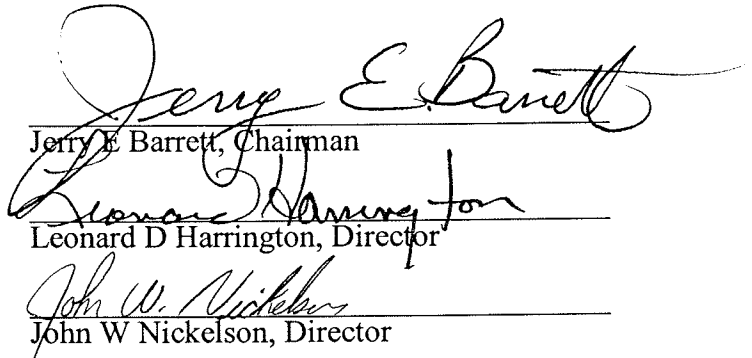 Jerry E. Barrett
Jerry E Barrett, Chairman
Leonard Harrington
Leonard D Harrington, Director
John W. Nickelson
John W Nickelson, Director